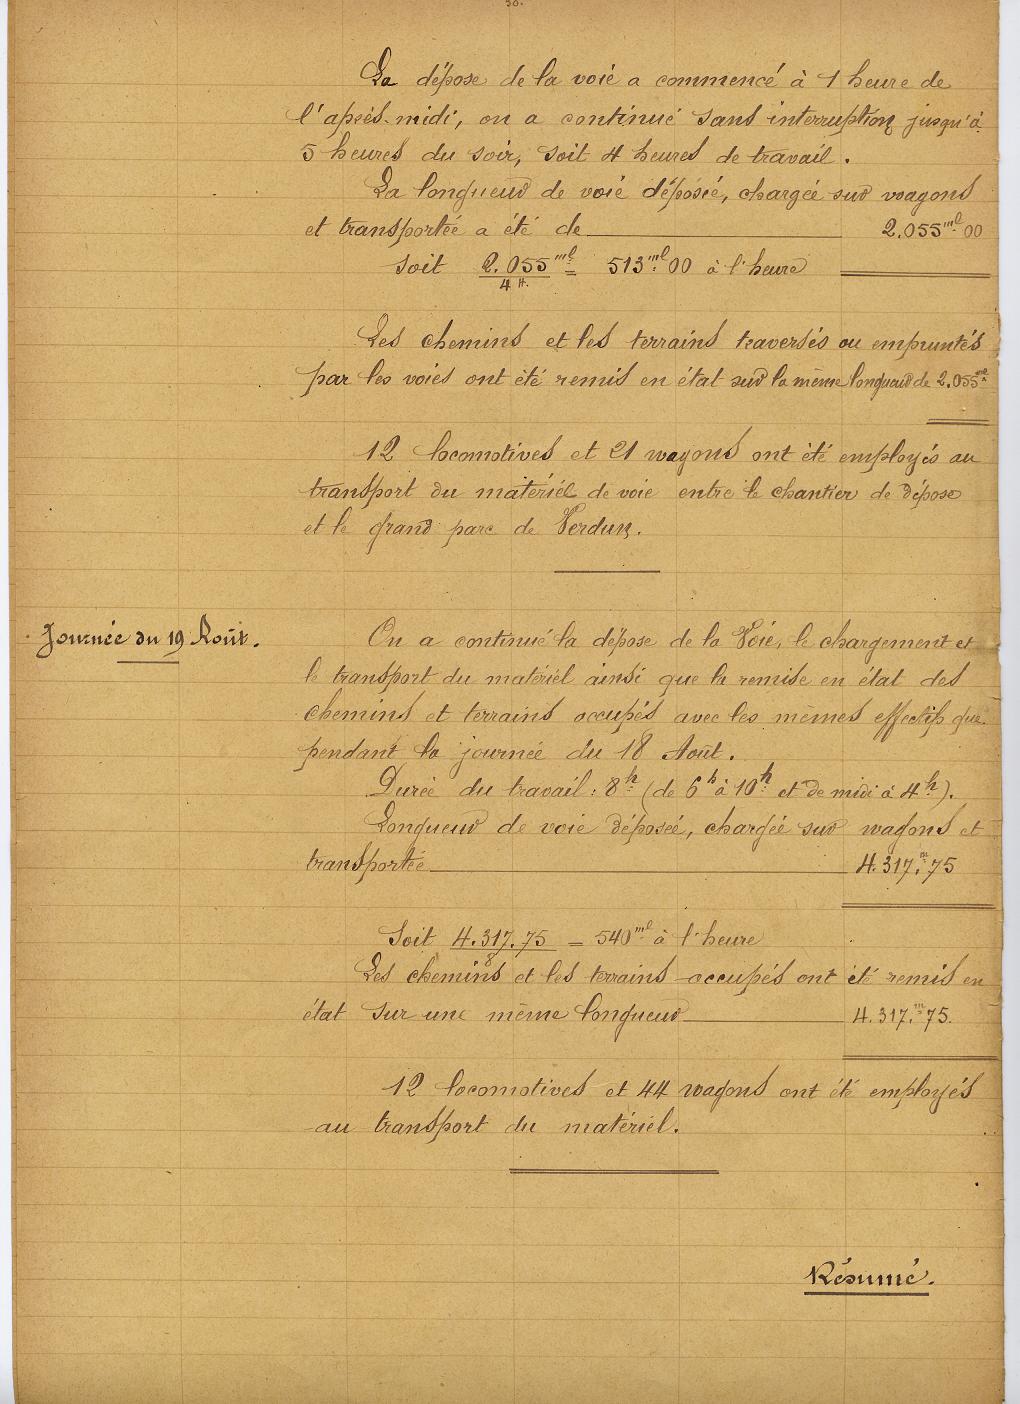 30.
La dépose de la voie a commencé à 1 heure de
l'après-midi, on a continué sans interruption jusqu'à
5 heures du soir, soit 4 heures de travail.
La longueur de voie déposée, chargée sur wagons
et transportée a été de 2.055ml.00
soit 2.055ml/4 H. = 513ml.00 à l'heure
Les chemins et les terrains traversés ou empruntés
par les voies ont été remis en état sur la même longueur de 2.055ml.
12 locomotives et 21 wagons ont été employés au
transport du matériel de voie entre le chantier de dépose
et le grand parc de Verdun.
Journée du 19 Août.
On a continué la dépose de la Voie, le chargement et
le transport du matériel ainsi que la remise en état des
chemins et terrains occupés avec les mêmes effectifs que
pendant la journée du 18 Août.
Durée du travail : 8h. (de 6h à 10h. et de midi à 4h.).
Longueur de voie déposée, chargée sur wagons et
transportée 4.317.m75
Soit 4.317.75/8 = 540ml. à l'heure
Les chemins et les terrains occupés ont été remis en
état sur une même longueur 4.317.m75.
12 locomotives et 44 wagons ont été employés
au transport du matériel.
Résumé.